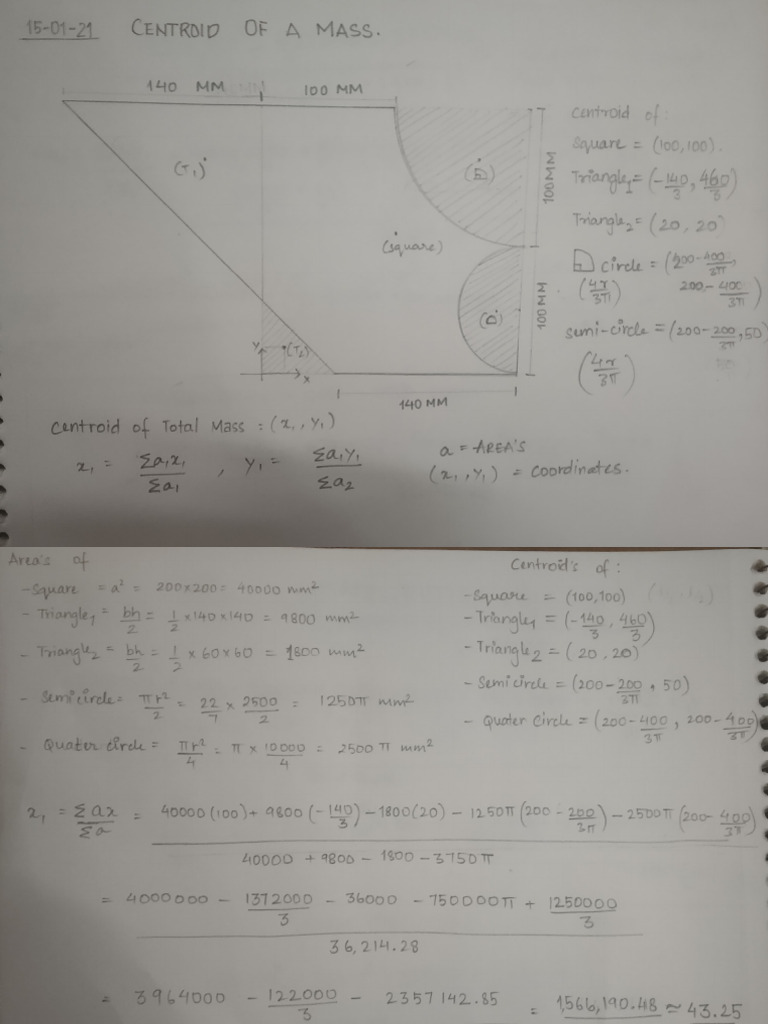 15-01-21 CENTROID OF A MASS.
140 MM 100 MM
(T₁)
(square)
100 MM
100 MM
Y
(T₂)
x
140 MM
Centroid of:
Square = (100,100).
Triangle₁ = (-140/3, 460/3)
Triangle₂ = (20, 20)
circle = (200-400/3π,
(4r/3π) 200-400/3π)
semi-circle = (200-200/3π, 50)
(4r/3π)
Centroid of Total Mass : (x₁, y₁)
x₁ = Σa₁x₁/Σa₁ , y₁ = Σa₁y₁/Σa₂
a = AREA'S
(x₁, y₁) = coordinates.
Area's of
- Square = a² = 200x200 = 40000 mm²
- Triangle₁ = bh/2 = 1/2 x 140 x 140 = 9800 mm²
- Triangle₂ = bh/2 = 1/2 x 60 x 60 = 1800 mm²
- Semicircle = πr²/2 = 22/7 x 2500/2 = 1250π mm²
- Quater circle = πr²/4 = π x 10000/4 = 2500 π mm²
Centroid's of :
- Square = (100,100)
- Triangle₁ = (-140/3, 460/3)
- Triangle 2 = (20, 20)
- Semicircle = (200-200/3π, 50)
- Quater Circle = (200-400/3π, 200-400/3π)
x₁ = Σax/Σa = 40000(100) + 9800(-140/3) - 1800(20) - 1250π(200-200/3π) - 2500π(200-400/3π)
40000 + 9800 - 1800 - 3750π
= 4000000 - 1372000/3 - 36000 - 750000π + 1250000/3
36,214.28
= 3964000 - 122000/3 - 2357142.85 = 1,566,190.48 ≃ 43.25